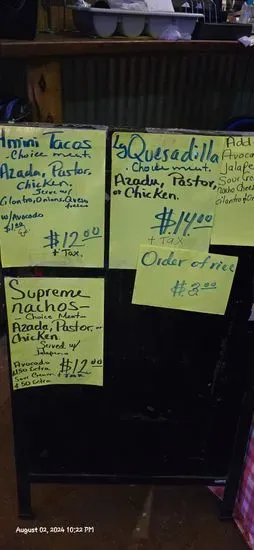 4 mini Tacos
- Choice meat.
Azada, Pastor,
Chicken.
Serve w/
Cilantro, Onions, Queso
fresco
w/Avocado
$1.00
$12.00
+ Tax.
Lg Quesadilla
- Choice meat.
Azada, Pastor,
or Chicken.
$14.00
+ Tax
Add
Avoca
Jalape
Sour Cr
Nacho Chee
Cilantro + On
Order of rice
$3.00
Supreme
nachos -
- Choice Meat -
Azada, Pastor, or
Chicken.
Served w/
Jalapeño
Avocado
$1.50 Extra
Sour Cream +
$.50 Extra
$12.00
+ Tax
August 02, 2024 10:22 PM